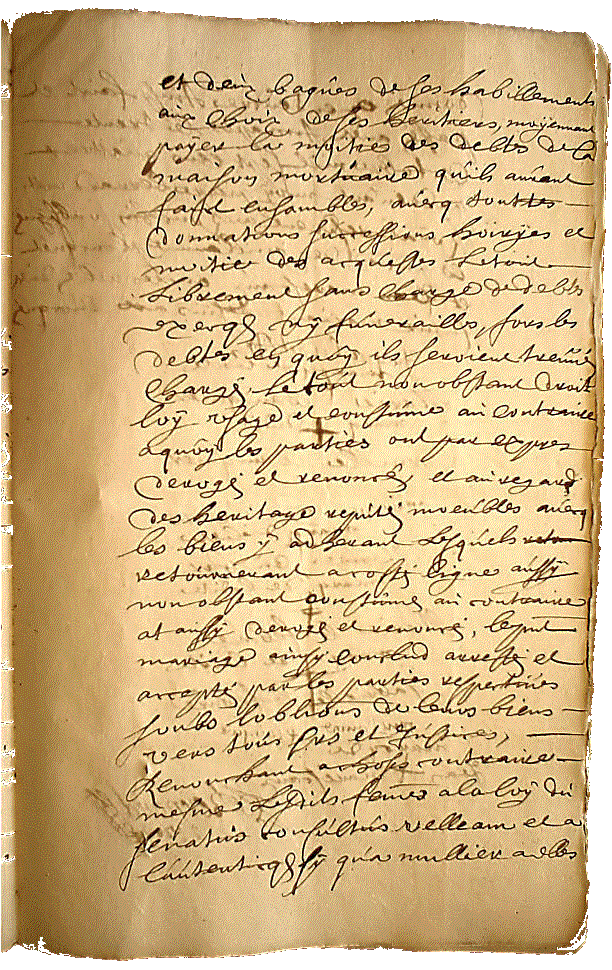 et deux bagues de ses habillements
aux choix de ses heritiers, moyennant
payer la moitiee des debtes de la
maison mortuaire qu'ils auront
faict ensambles, avecq touttes
donnations successions hoiryes et
moitie des acquestes le tout
librement sans charge de debts
exeqs ny funerailles, fors les
debtes en quoÿ ils seroient trouvé
chargé, le tout nonobstant droit
loÿ usage et coustume au contraire
a quoÿ les parties ont par expres
derogé et renoncé, et au regard
des heritage reputé moeubles avecq
les biens ÿ adherant lesquels
retourneront a costé ligne aussÿ
nonobstant coustume au contraire
at aussÿ derogé et renoncé, le pnt
mariage ainsÿ conclud arresté et
accepté par les parties respectives
soubs loblions de leurs biens
vers tous srs et justices,
Renonchant a choses contraire
mesme lesdits femes a la loÿ du
senatus consultus velleam et a
lautenticq sÿ qua mullier a elles